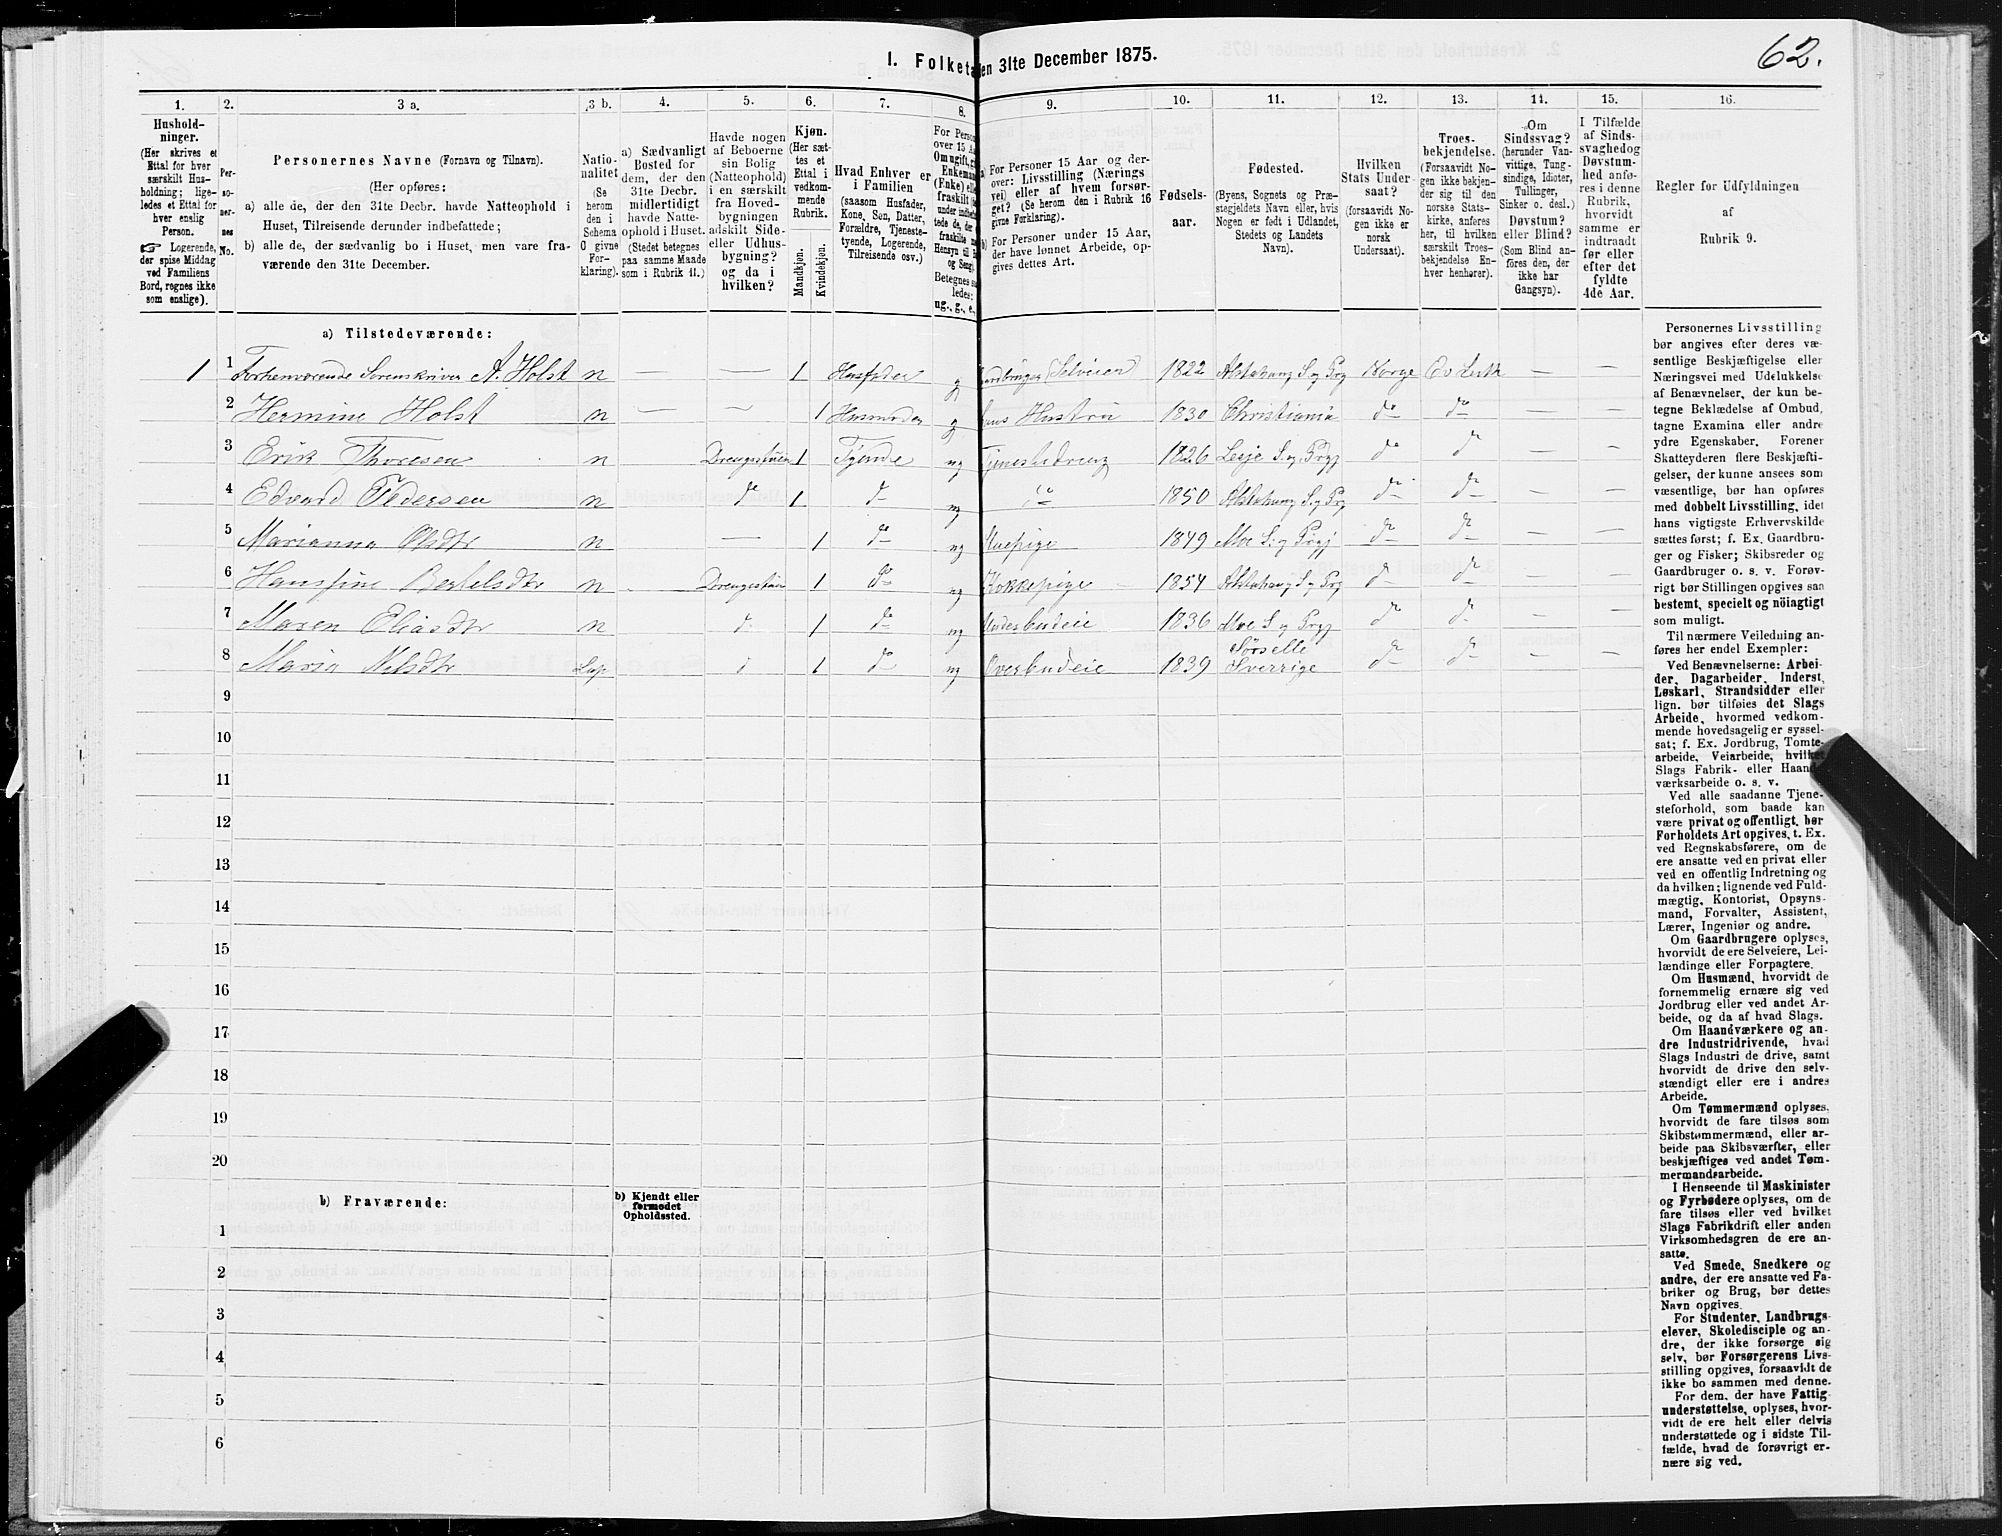 62.
I. Folketa en 31te December 1875.
1. 2. 3 a. 3 b. 4. 5. 6. 7. 8. 9. 10. 11. 12. 13. 14. 15. 16.
Hushold-
ninger.
(Her skrives et
Ettal for hver
særskilt Hus-
holdning; lige-
ledes et Ettal for
hver enslig
Person.
☞ Logerende,
der spise Middag
ved Familiens
Bord, regnes ikke
som enslige).
Per-
so-
ner-
nes
No.
Personernes Navne (Fornavn og Tilnavn).
(Her opføres:
a) alle de, der den 31te Decbr. havde Natteophold i
Huset, Tilreisende derunder indbefattede;
b) alle de, der sædvanlig bo i Huset, men vare fra-
værende den 31te December.
Natio-
nalitet
(Se
herom
den i
Schema
O givne
For-
klaring).
a) Sædvanligt
Bosted for
dem, der den
31te Decbr.
midlertidigt
havde Natte-
ophold i Huset.
(Stedet betegnes
paa samme Maade
som i Rubrik 11.)
Havde nogen
af Beboerne
sin Bolig
(Natteophold)
i en særskilt
fra Hoved-
bygningen
adskilt Side-
eller Udhus-
bygning?
og da i
hvilken?
Kjøn.
(Her sæt-
tes et
Ettal i
vedkom-
mende
Rubrik.
Mandkjøn.
Kvindekjøn.
Hvad Enhver er
i Familien
(saasom Husfader,
Kone, Søn, Datter,
Forældre, Tjeneste-
tyende, Logerende,
Tilreisende osv.)
For Perso
over 15 Aa
Om ugift, gi
Enkeman
(Enke) elle
fraskilt (
under indb
tede de, der
fraskilte
Hensyn til
og Seng).
Betegnes sa
ledes:
ug., g., e.,
a) For Personer 15 Aar og der-
over: Livsstilling (Nærings
vei) eller af hvem forsør-
get? (Se herom den i Rubrik 16
givne Førklaring).
b) For Personer under 15 Aar,
der have lønnet Arbeide, op-
gives dettes Art.
Fødsels-
aar.
Fødested.
(Byens, Sognets og Præ-
stegjeldets Navn eller, hvis
Nogen er født i Udlandet,
Stedets og Landets
Navn).
Hvilken
Stats Under
saat?
(forsaavidt No-
gen ikke er
norsk
Undersaat).
Troes-
bekjendelse.
(Forsaavidt No-
gen ikke bekjen-
der sig til den
norske Stats-
kirke, anføres
her, til hvilken
særskilt Troes-
bekjendelse En-
hver henhører).
Om
Sindssvag?
(herunder Van-
vittige, Tung-
sindige, Idioter,
Tullinger,
Sinker o. desl.)
Døvstum?
eller Blind?
(Som Blind an-
føres den, der
ikke har
Gangsyn).
I Tilfælde
af Sinds-
svaghed og
Døvstum-
hed anfø-
res i denne
Rubrik,
hvorvidt
samme er
indtraadt
før eller
efter det
fyldte
4de Aar.
Regler for Udfyldningen
af
Rubrik 9.
a) Tilstedeværende:
1 1 Forhenværende Sorenskriver A. Holst n — — 1 Husfader g Gaardbruger (Selveier) 1822 Alstahaug S. og Prg Norge Ev Luth — —
2 Hermine Holst n — — 1 Husmoder g hans Hustru 1830 Christiania do do — —
3 Erik Thoresen n Drengestuen 1 Tyende ug Tjenestedreng 1826 Lesje S. og Prgj do do — —
4 Edvard Pedersen n do 1 do ug do 1850 Alstahaug S. og Prg do do — —
5 Marianna Olsdtr n — 1 do ug Stuepige 1849 Moe S. og Prgj do do — —
6 Hansine Bertelsdtr n Drengestuen 1 do ug Kokkepige 1854 Alstahaug S. og Prg do do — —
7 Maren Eliasdtr n do 1 do ug Underbudeie 1836 Moe S. og Prgj do do — —
8 Maria Nilsdtr Lap do 1 do ug Overbudeie 1839 Sørselle Sverrige do do — —
9
10
11
12
13
14
15
16
17
18
19
20
b) Fraværende:
b) Kjendt eller
formodet
Opholdssted.
1
2
3
4
5
6
Personernes Livsstilling
bør angives efter deres væ-
sentlige Beskjæftigelse eller
Næringsvei med Udelukkelse
af Benævnelser, der kun be-
tegne Beklædelse af Ombud,
tagne Examina eller andre
ydre Egenskaber. Forener
Skatteyderen flere Beskjæfti-
gelser, der kunne ansees som
væsentlige, bør han opføres
med dobbelt Livsstilling, idet
hans vigtigste Erhvervskilde
sættes først; f. Ex. Gaardbru-
ger og Fisker; Skibsreder og
Gaardbruger o. s. v. Forøv-
rigt bør Stillingen opgives saa
bestemt, specielt og nöiagtigt
som muligt.
Til nærmere Veiledning an-
føres her endel Exempler:
Ved Benævnelserne: Arbei-
der, Dagarbeider, Inderst,
Løskarl, Strandsidder eller
lign. bør tilføies det Slags
Arbeide, hvormed vedkom-
mende hovedsagelig er syssel-
sat; f. Ex. Jordbrug, Tomte-
arbeide, Veiarbeide, hvilket
Slags Fabrik- eller Haand-
værksarbeide o. s. v.
Ved alle saadanne Tjene-
steforhold, som baade kan
være privat og offentligt, bør
Forholdets Art opgives, t. Ex.
ved Regnskabsførere, om de
ere ansatte ved en privat eller
ved en offentlig Indretning og
da hvilken; lignende ved Fuld-
mægtig, Kontorist, Opsyns-
mand, Forvalter, Assistent,
Lærer, Ingeniør og andre.
Om Gaardbrugere oplyses,
hvorvidt de ere Selveiere, Lei-
lændinge eller Forpagtere.
Om Husmænd, hvorvidt de
fornemmelig ernære sig ved
Jordbrug eller ved andet Ar-
beide, og da af hvad Slags.
Om Haandværkere og an-
dre Industridrivende, hvad
Slags Industri de drive, samt
hvorvidt de drive den selv-
stændigt eller ere i andres
Arbeide.
Om Tømmermænd oplyses,
hvorvidt de fare tilsøs som
Skibstømmermænd, eller ar-
beide paa Skibsværfter, eller
beskjæftiges ved andet Tøm-
mermandsarbeide.
I Henseende til Maskinister
og Fyrbødere oplyses, om de
fare tilsøs eller ved hvilket
Slags Fabrikdrift eller anden
Virksomhedsgren de ere an-
satte.
Ved Smede, Snedkere og
andre, der ere ansatte ved Fa-
briker og Brug, bør dettes
Navn opgives.
For Studenter, Landbrugs-
elever, Skoledisciple og an-
dre, der ikke forsørge sig
selv, bør Forsørgerens Livs-
stilling opgives, forsaavidt de
ikke bo sammen med denne.
For dem, der have Fattig-
understøttelse, oplyses, hvor-
vidt de ere helt eller delvis
understøttede og i sidste Til-
fælde, hvad de forøvrigt er-
nære sig ved.